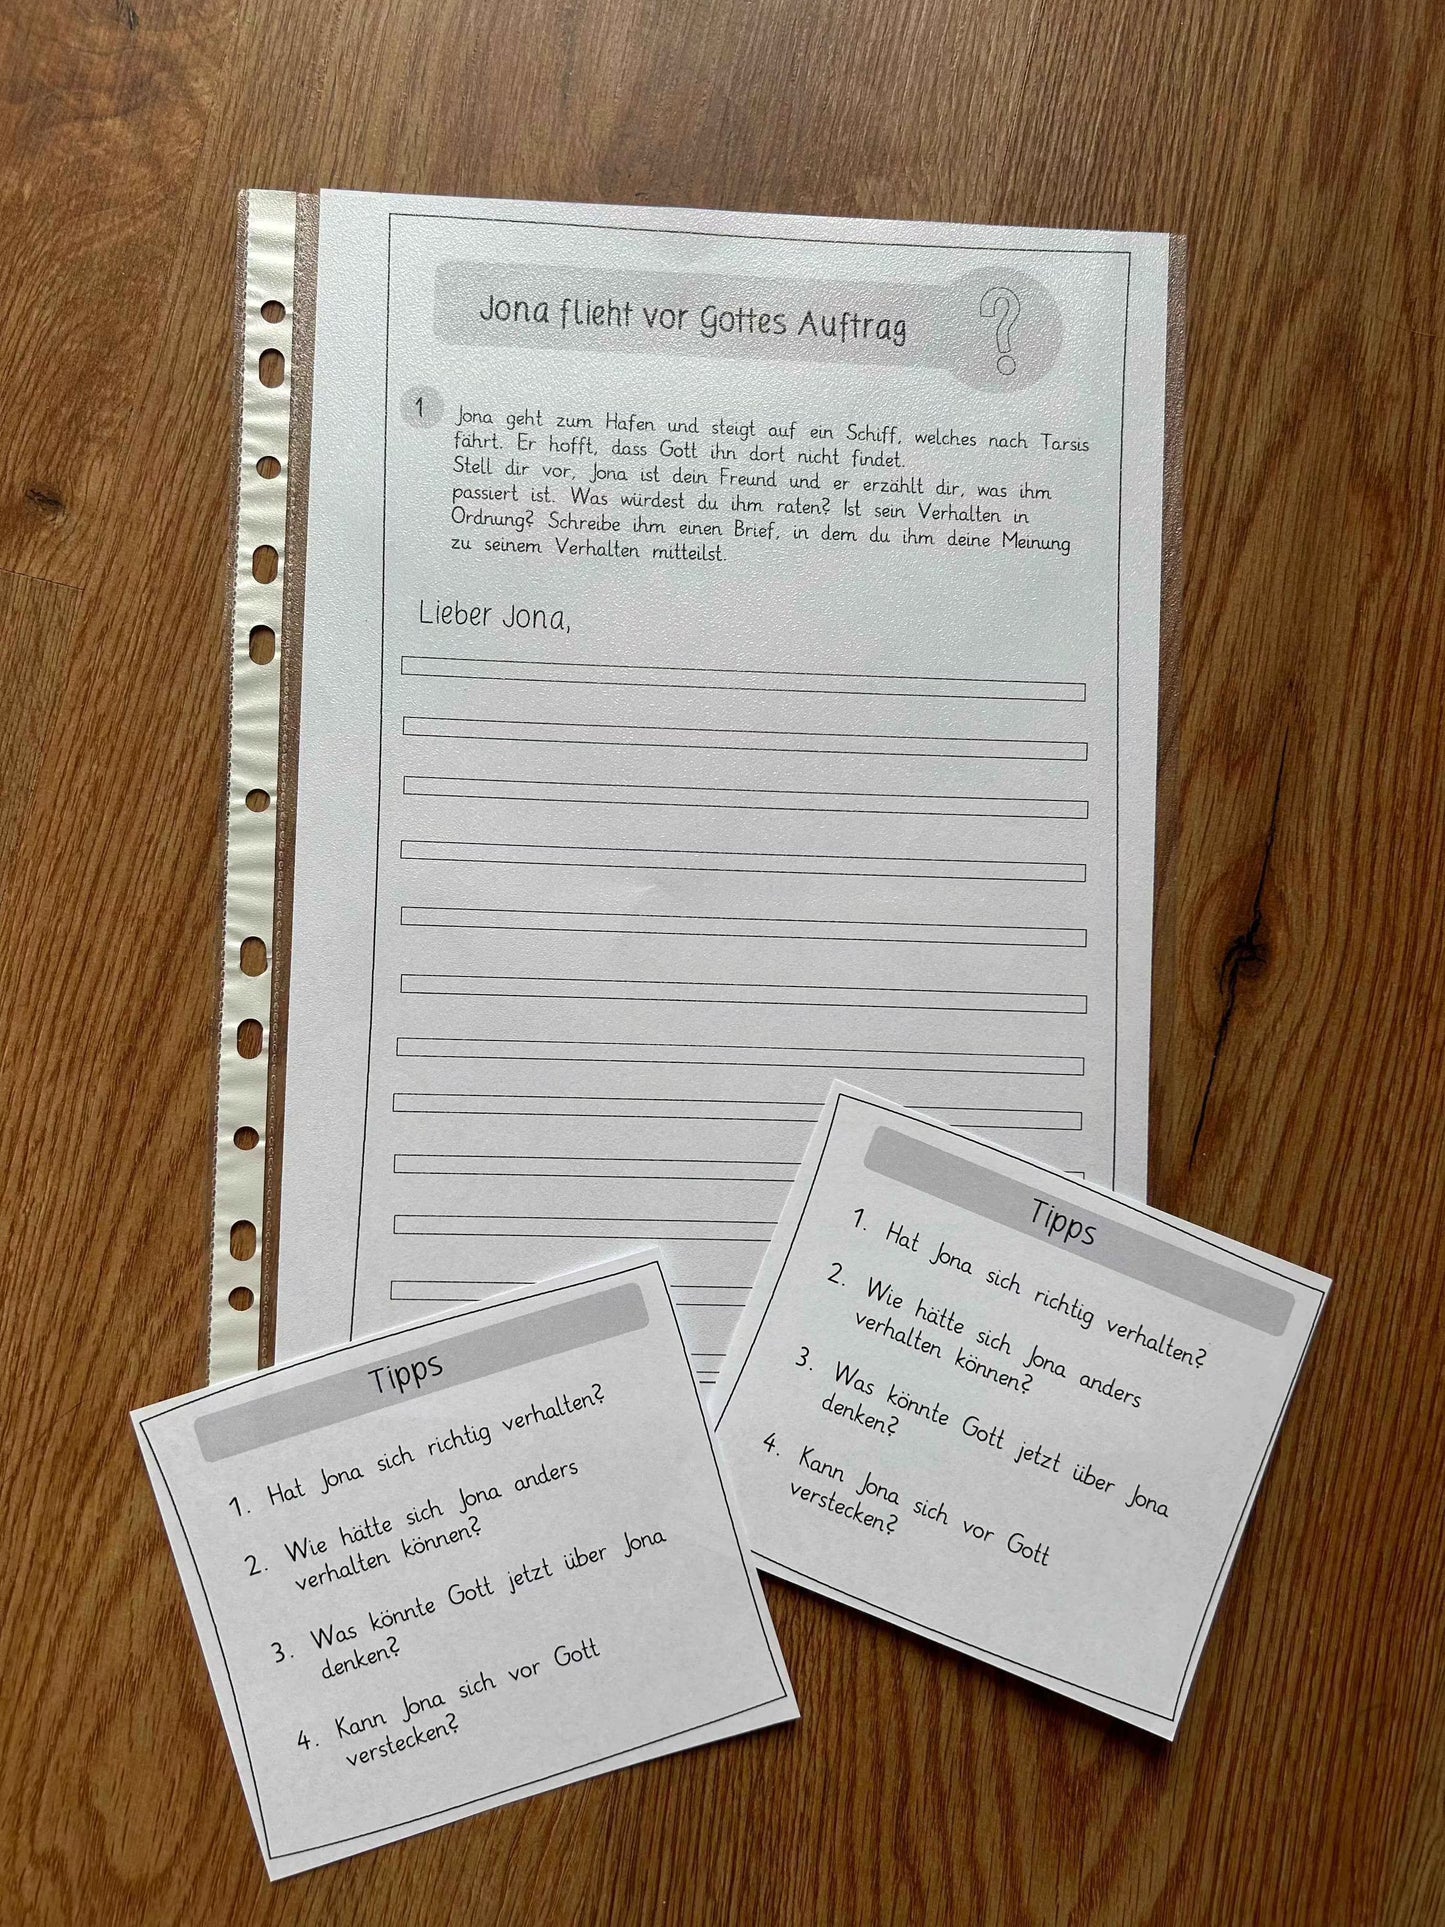 Jona flieht vor Gottes Auftrag
?
1
Jona geht zum Hafen und steigt auf ein Schiff, welches nach Tarsis
fährt. Er hofft, dass Gott ihn dort nicht findet.
Stell dir vor, Jona ist dein Freund und er erzählt dir, was ihm
passiert ist. Was würdest du ihm raten? Ist sein Verhalten in
Ordnung? Schreibe ihm einen Brief, in dem du ihm deine Meinung
zu seinem Verhalten mitteilst.
Lieber Jona,
Tipps
1. Hat Jona sich richtig verhalten?
2. Wie hätte sich Jona anders
verhalten können?
3. Was könnte Gott jetzt über Jona
denken?
4. Kann Jona sich vor Gott
verstecken?
Tipps
1. Hat Jona sich richtig verhalten?
2. Wie hätte sich Jona anders
verhalten können?
3. Was könnte Gott jetzt über Jona
denken?
4. Kann Jona sich vor Gott
verstecken?